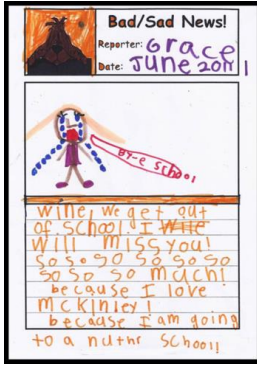 Bad/Sad News!
Reporter: Grace
Date: June 2011
BY-E School
wine, we get out
of school I Will
Will miss you!
so so so so so so so
so so so much!
because I love
mckinley!
because I am going
to a nuthr school!